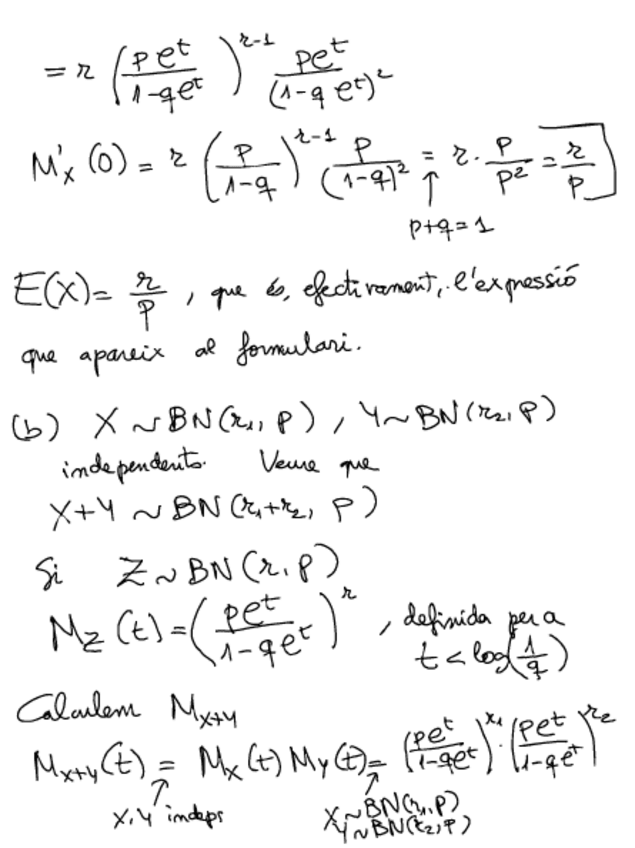 = r (pe^t / (1-qe^t))^(r-1) pe^t / (1-qe^t)^2
M'_X (0) = r (p / (1-q))^(r-1) p / (1-q)^2 = r · p / p^2 = r / p
↑
p+q=1
E(X) = r / p , que és, efectivament, l'expressió
que apareix al formulari.
(b) X ~ BN(r_1, p) , Y ~ BN(r_2, p)
independents. Veure que
X+Y ~ BN(r_1+r_2, p)
Si Z ~ BN(r, p)
M_Z (t) = (pe^t / (1-qe^t))^r , definida per a
t < log(1/q)
Calculem M_X+Y
M_X+Y (t) = M_X (t) M_Y (t) = (pe^t / (1-qe^t))^r_1 · (pe^t / (1-qe^t))^r_2
↑ ↑
X, Y indeps X ~ BN(r_1, p)
Y ~ BN(r_2, p)